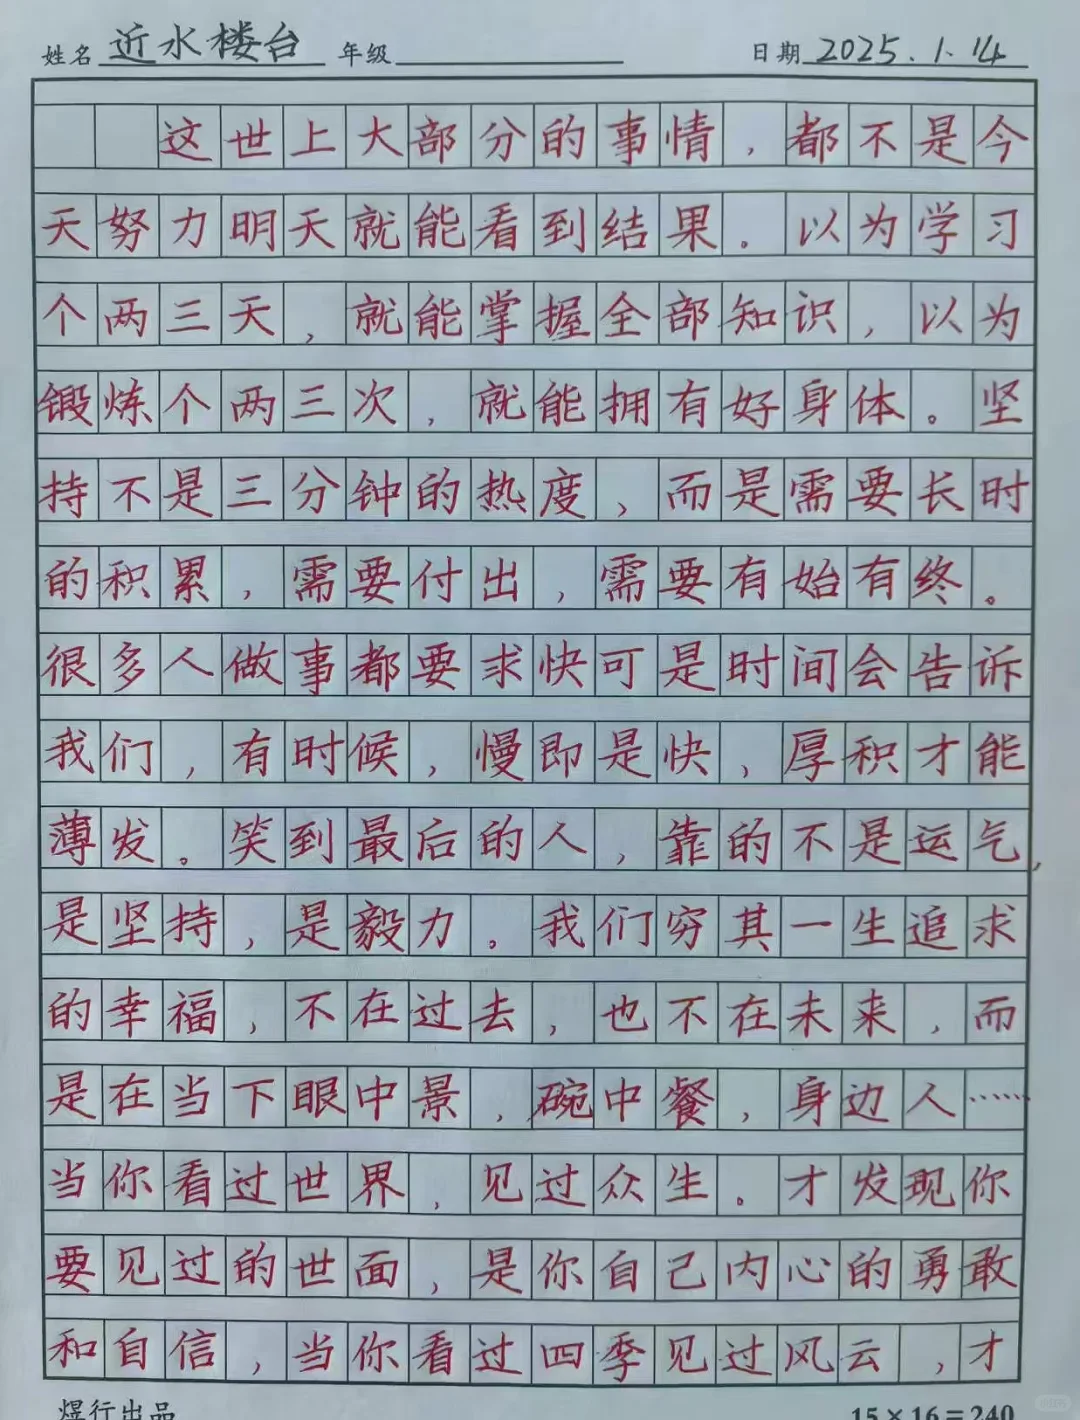 姓名 近水楼台 年级 日期 2025.1.14
这世上大部分的事情,都不是今
天努力明天就能看到结果。以为学习
个两三天,就能掌握全部知识,以为
锻炼个两三次,就能拥有好身体。坚
持不是三分钟的热度,而是需要长时
的积累,需要付出,需要有始有终。
很多人做事都要求快可是时间会告诉
我们,有时候,慢即是快,厚积才能
薄发。笑到最后的人,靠的不是运气,
是坚持,是毅力。我们穷其一生追求
的幸福,不在过去,也不在未来,而
是在当下眼中景,碗中餐,身边人……
当你看过世界,见过众生。才发现你
要见过的世面,是你自己内心的勇敢
和自信,当你看过四季见过风云,才
煜行出品 15×16=240